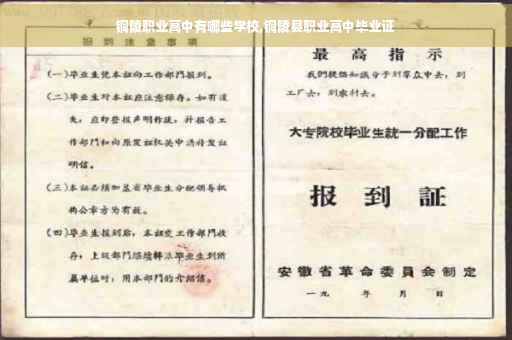 铜陵职业高中有哪些学校,铜陵县职业高中毕业证
报到注意事项
(一)毕业生凭本证向工作部门报到。
(二)毕业生对本证应注意保存。如有遗
失,应即登报声明作废,并报告工
作部门和向原发证机关申请补发证
明信。
(三)本证必须加盖省毕业生分配领导机
构公章方为有效。
(四)毕业生报到后,本证交工作部门收
存;上级部门继续转派毕业生到所
属单位时,用本部门的介绍信。
最高指示
我们提倡知识分子到群众中去,到
工厂去,到农村去。
大专院校毕业生統一分配工作
报到証
安徽省革命委員会制定
一九 年 月 日